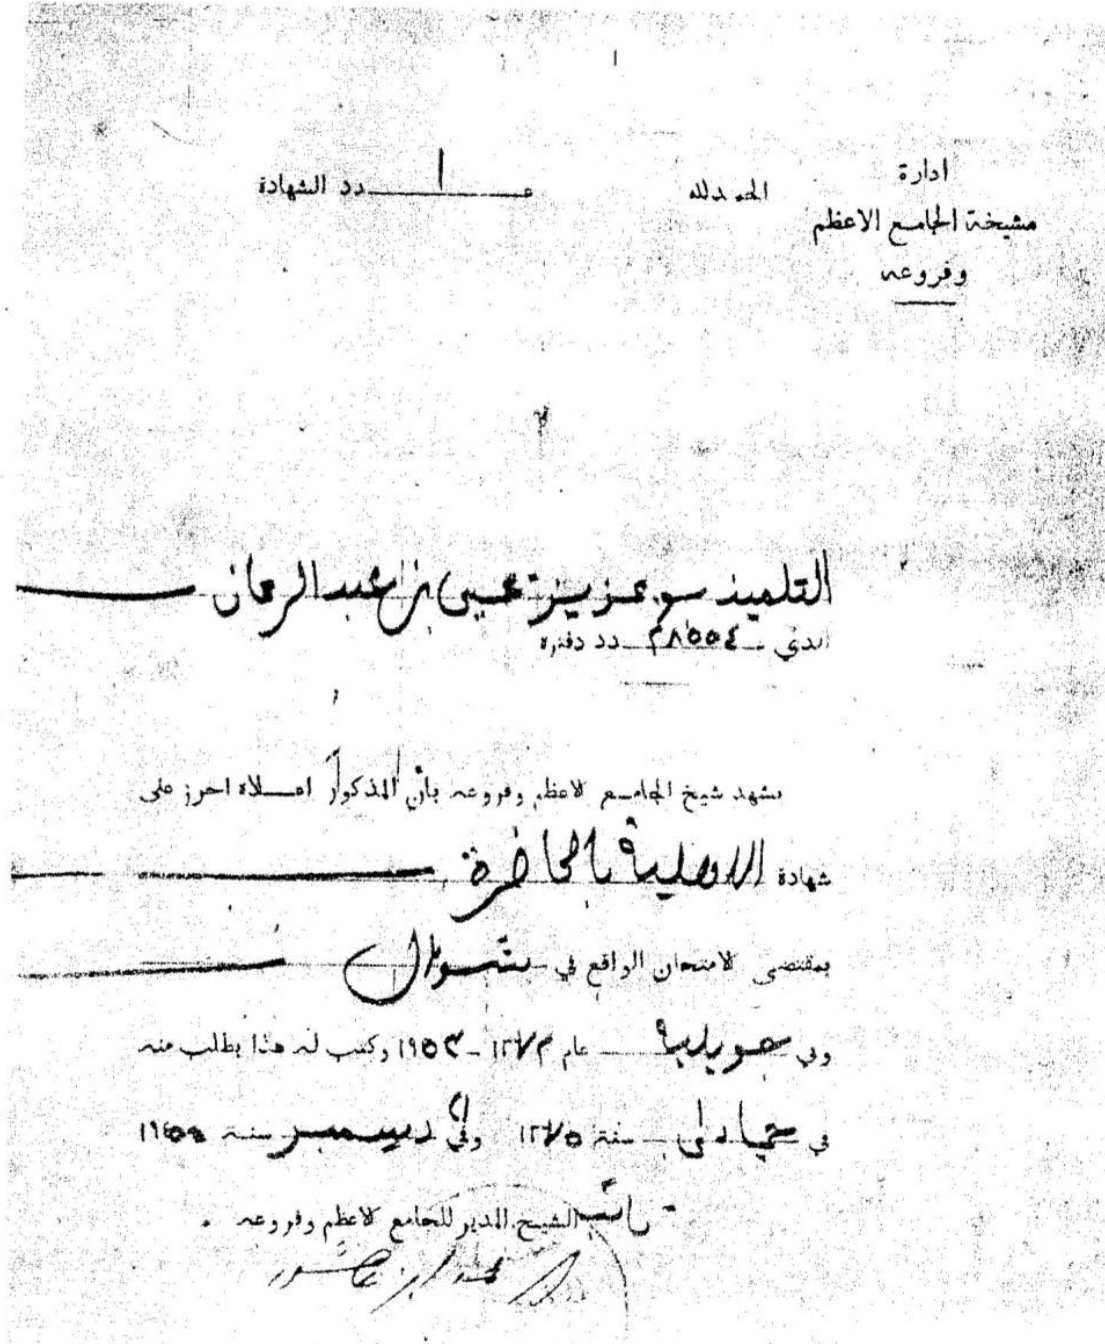 ادارة
مشيخة الجامع الاعظم
وفروعه
الحمد لله
عـ ١ ـدد الشهادة
التلميذ بو عزيز يحيى بن عبد الرحمان
عدد دفتره ٢٨٥٥٤
يشهد شيخ الجامع الاعظم وفروعه بأن المذكور اعلاه احرز على
شهادة الاهلية بالحاضرة
بمقتضى الامتحان الواقع في شوال
وفي جويلية عام ١٣٧٢ - ١٩٥٣ وكتب له هذا بطلب منه
في جمادى سنة ١٣٧٥ وفي ديسمبر سنة ١٩٥٥
الشيخ المدير للجامع الاعظم وفروعه